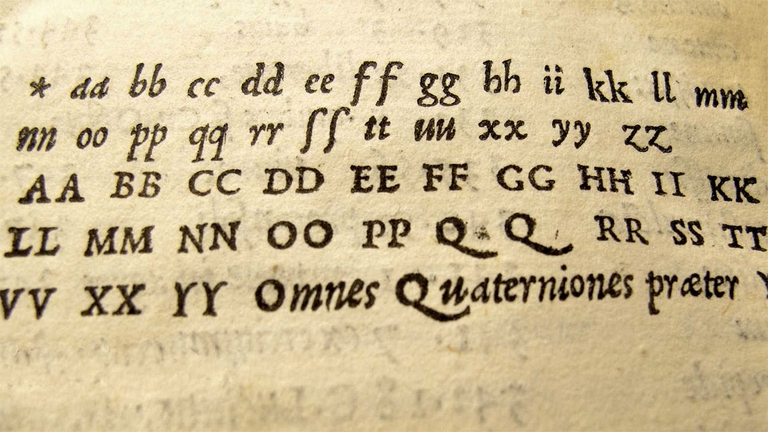 * aa bb cc dd ee ff gg hh ii kk ll mm
nn oo pp qq rr ſſ tt uu xx yy zz
AA BB CC DD EE FF GG HH II KK
LL MM NN OO PP QQ RR SS TT
VV XX YY Omnes Quaterniones præter